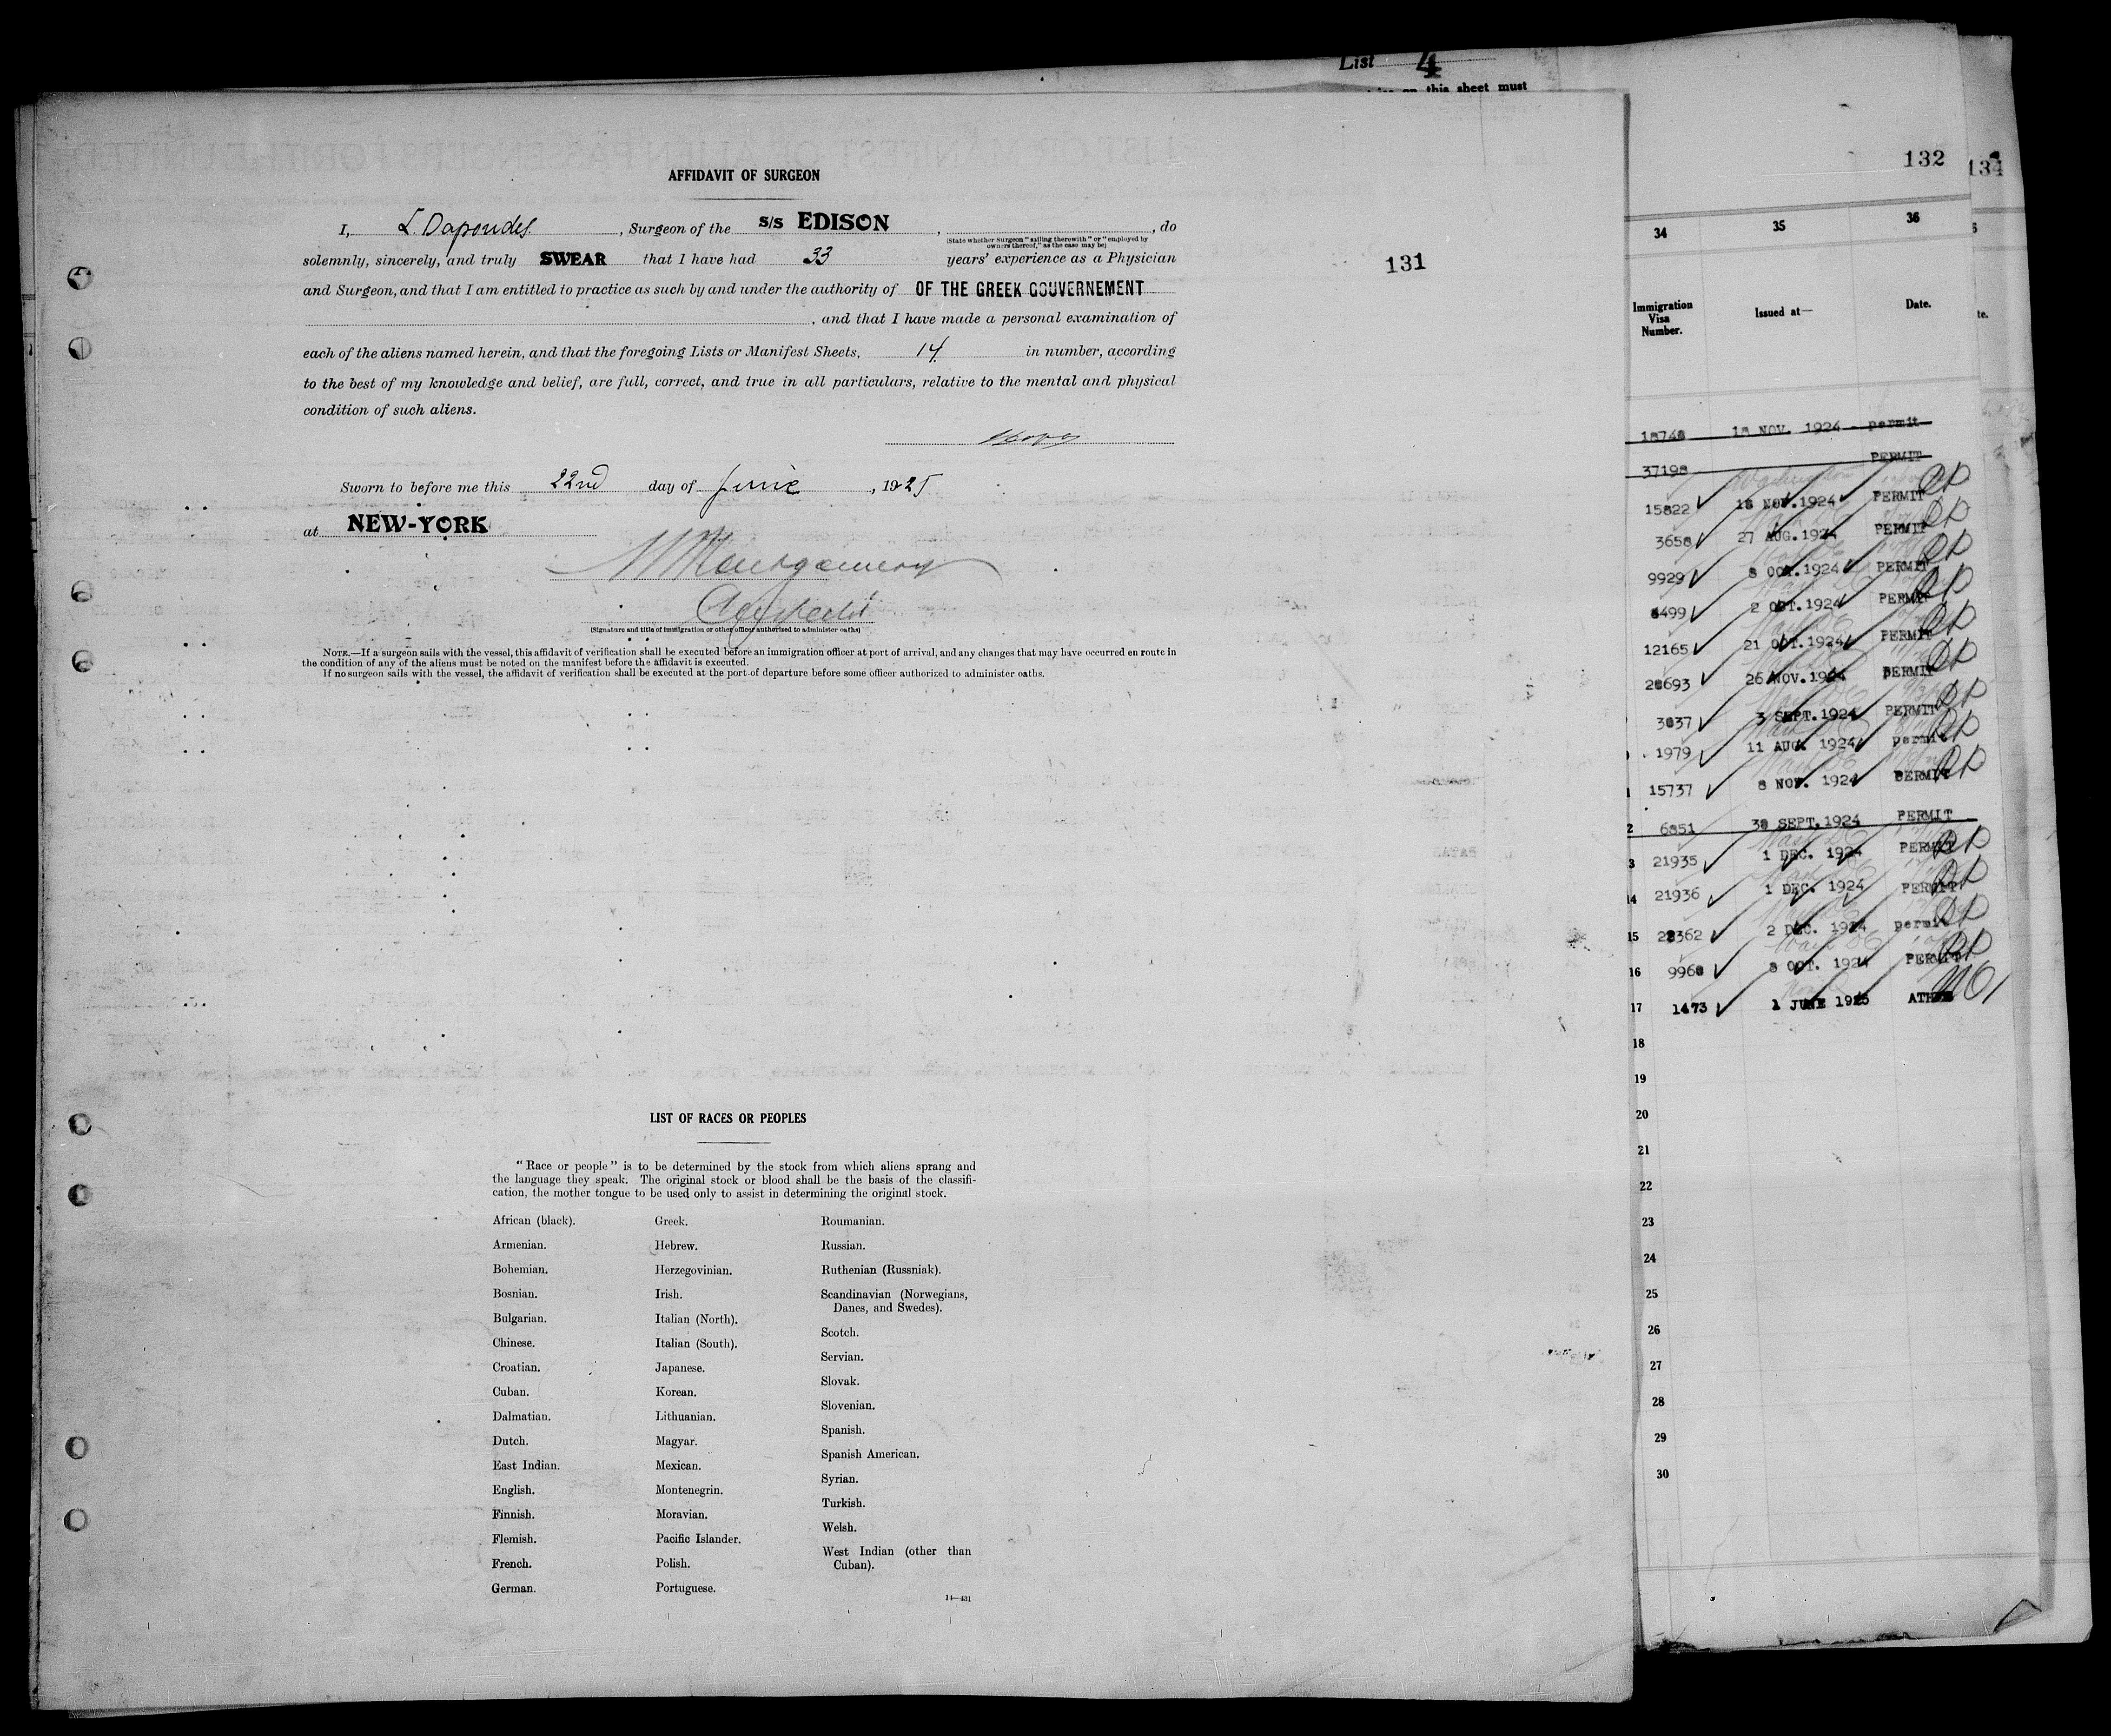 List 4
on this sheet must
AFFIDAVIT OF SURGEON
I, L. Dapondes, Surgeon of the s/s EDISON, , do
(State whether Surgeon "sailing therewith" or "employed by
owners thereof," as the case may be)
solemnly, sincerely, and truly SWEAR that I have had 33 years' experience as a Physician
and Surgeon, and that I am entitled to practice as such by and under the authority of OF THE GREEK GOUVERNEMENT
, and that I have made a personal examination of
each of the aliens named herein, and that the foregoing Lists or Manifest Sheets, 14 in number, according
to the best of my knowledge and belief, are full, correct, and true in all particulars, relative to the mental and physical
condition of such aliens.
Sworn to before me this 22nd day of June, 1925
at NEW-YORK
Montgomery
(Signature and title of immigration or other officer authorized to administer oaths)
NOTE.—If a surgeon sails with the vessel, this affidavit of verification shall be executed before an immigration officer at port of arrival, and any changes that may have occurred en route in
the condition of any of the aliens must be noted on the manifest before the affidavit is executed.
If no surgeon sails with the vessel, the affidavit of verification shall be executed at the port of departure before some officer authorized to administer oaths.
131
LIST OF RACES OR PEOPLES
"Race or people" is to be determined by the stock from which aliens sprang and
the language they speak. The original stock or blood shall be the basis of the classifi-
cation, the mother tongue to be used only to assist in determining the original stock.
African (black).
Armenian.
Bohemian.
Bosnian.
Bulgarian.
Chinese.
Croatian.
Cuban.
Dalmatian.
Dutch.
East Indian.
English.
Finnish.
Flemish.
French.
German.
Greek.
Hebrew.
Herzegovinian.
Irish.
Italian (North).
Italian (South).
Japanese.
Korean.
Lithuanian.
Magyar.
Mexican.
Montenegrin.
Moravian.
Pacific Islander.
Polish.
Portuguese.
Roumanian.
Russian.
Ruthenian (Russniak).
Scandinavian (Norwegians,
Danes, and Swedes).
Scotch.
Servian.
Slovak.
Slovenian.
Spanish.
Spanish American.
Syrian.
Turkish.
Welsh.
West Indian (other than
Cuban).
14—431
132
134
34 35 36
Immigration
Visa
Number.
Issued at—
Date.
te.
18748 18 NOV. 1924 permit
37198 PERMIT
15822 18 NOV. 1924 PERMIT
3658 27 AUG. 1924 PERMIT
9929 8 OCT. 1924 PERMIT
8499 2 OCT. 1924 PERMIT
12165 21 OCT. 1924 PERMIT
20693 26 NOV. 1924 PERMIT
3037 3 SEPT. 1924 PERMIT
1979 11 AUG. 1924 permit
15737 8 NOV. 1924 PERMIT
2 6851 30 SEPT. 1924 PERMIT
3 21935 1 DEC. 1924 PERMIT
14 21936 1 DEC. 1924 PERMIT
15 22362 2 DEC. 1924 permit
16 9968 8 OCT. 1924 PERMIT
17 1473 1 JUNE 1925
18
19
20
21
22
23
24
25
26
27
28
29
30